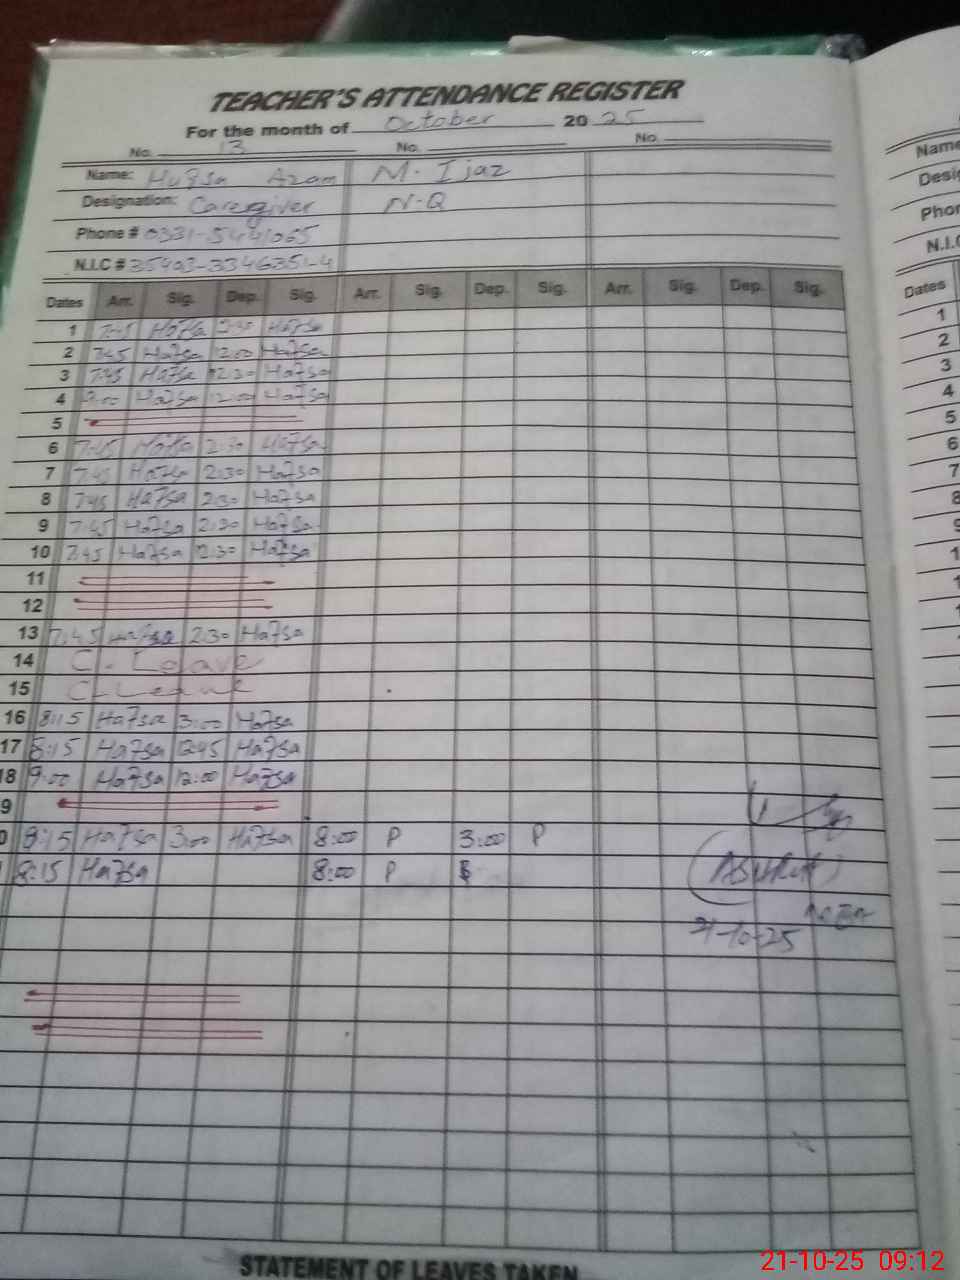 TEACHER'S ATTENDANCE REGISTER
For the month of October 20 25
No. 13 No. No.
Name: Hufsa Azam M. Ijaz
Designation: Caregiver N-Q
Phone # 0331-5441065
N.I.C # 35403-3346351-4
Dates Arr. Sig. Dep. Sig. Arr. Sig. Dep. Sig. Arr. Sig. Dep. Sig.
1 7:45 Hafsa 2:30 Hafsa
2 7:45 Hafsa 12:00 Hafsa
3 7:45 Hafsa 12:30 Hafsa
4 9:00 Hafsa 12:00 Hafsa
5
6 7:45 Hafsa 2:30 Hafsa
7 7:45 Hafsa 2:30 Hafsa
8 7:45 Hafsa 2:30 Hafsa
9 7:45 Hafsa 2:30 Hafsa
10 7:45 Hafsa 2:30 Hafsa
11
12
13 7:45 Hafsa 2:30 Hafsa
14 C. Leave
15 C-Leave
16 8:15 Hafsa 3:00 Hafsa
17 8:15 Hafsa 12:45 Hafsa
18 9:00 Hafsa 12:00 Hafsa
9
0 8:15 Hafsa 3:00 Hafsa 8:00 P 3:00 P
8:15 Hafsa 8:00 P
21-10-25
STATEMENT OF LEAVES TAKEN
Name
Desi
Phor
N.I.C
Dates
1
2
3
4
5
6
7
8
9
21-10-25 09:12